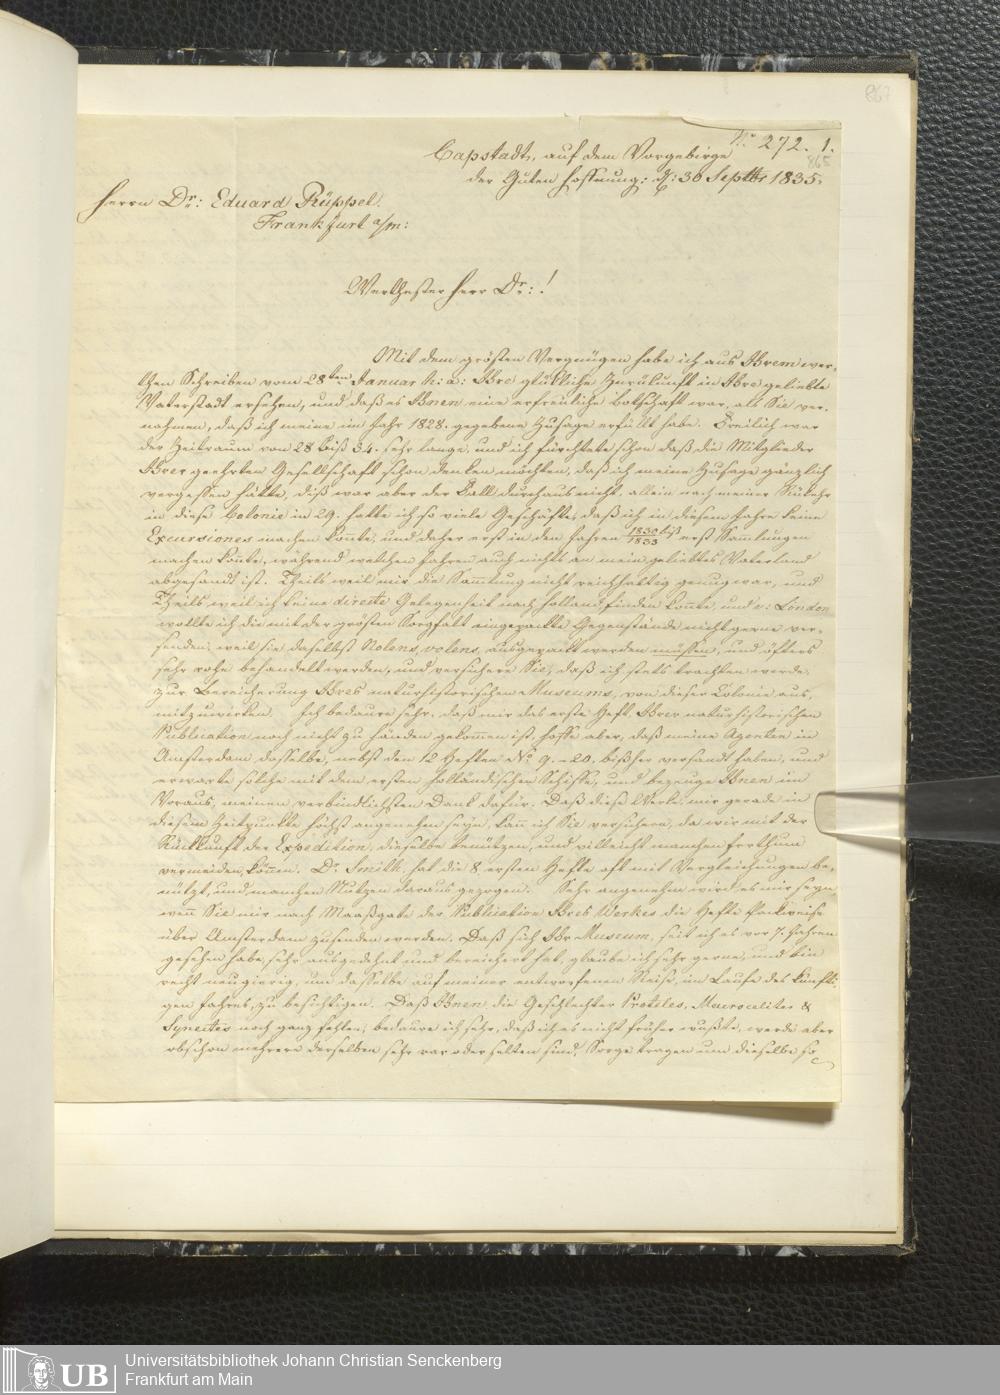 867
No 272. 1.
865
Capstadt, auf dem Vorgebirge
der Guten Hoffnung; d: 30 Septbr 1835.
Herrn Dr: Eduard Rüppel.
Frankfurt a/m:
Werthester Herr Dr: !
Mit dem grösten Vergnügen habe ich aus Ihrem wer-
then Schreiben vom 28ten Januar h: a: Ihre glükliche Zurükunft in Ihre geliebte
Vaterstadt ersehen, und daß es Ihnen eine erfreuliche Bothschaft war, als Sie ver-
nahmen, daß ich meine im Jahr 1828. gegebene Zusage erfüllt habe. Freilich war
der Zeitraum von 28 biß 34. sehr lange, und ich fürchtete schon daß die Mitglieder
Ihrer geehrten Gesellschaft schon denken möchten, daß ich meine Zusage gänzlich
vergessen hätte, diß war aber der Fall durchaus nicht, allein nach meiner Rükkehr
in diese Colonie in 29. hatte ich so viele Geschäfte, daß ich in diesem Jahre keine
Excursiones machen konnte, und daher erst in den Jahren 1830 biß 1833 erst Sammlungen
machen konnte, während welchen Jahren auch nichts an mein geliebtes Vaterland
abgesandt ist. Theils weil mir die Sammlung nicht reichhaltig genug war, und
Theils weil ich keine directe Gelegenheit nach Holland finden konnte, und v: London
wollte ich die mit der grösten Sorgfalt eingepackte Gegenstände nicht gerne ver-
senden, weil sie daselbst Nolens, volens, ausgepackt werden müssen, und öfters
sehr rohe behandelt werden, und versichere Sie, daß ich stets trachten werde
zur Bereicherung Ihres naturhistorischen Museums, von dieser Colonie aus,
mitzuwirken. Ich bedaure sehr, daß mir das erste Heft Ihrer naturhistorischen
Publication noch nicht zu Händen gekommen ist, hoffe aber, daß meine Agenten in
Amsterdam dasselbe, nebst den 12 Heften No 9.-20. bißher versandt haben, und
erwarte solche mit dem ersten holländischen Schiffe, und bezeuge Ihnen im
Voraus, meinen verbindlichsten Dank dafür. Daß diese Werke, mir gerade in
diesem Zeitpunkte höchst angenehm seyn, kann ich Sie versichern, da wir mit der
Rückkunft der Expedition, dieselbe benützen, und villeicht manchen Irrthum
vermeiden können. Dr. Smith, hat die 8 ersten Hefte oft mit Vergleichungen be-
nützt, und manchen Nutzen daraus gezogen. Sehr angenehm wird es mir seyn
wenn Sie mir nach Maaßgabe der Publication Ihres Werkes die Hefte Packweise
über Amsterdam zusenden werden. Daß sich Ihr Museum, seit ich es vor 7. Jahren
gesehen habe, sehr ausgedehnt und bereichert hat, glaube ich sehr gerne, und bin
recht neugierig, um dasselbe auf meiner entworfenen Reise, im Laufe des künfti-
gen Jahres, zu besichtigen. Daß Ihnen die Geschlechter Proteles, Macrocelites &
noch ganz fehlen, bedaure ich sehr, daß ich es nicht früher wußte, werde aber
obschon mehrere derselben sehr rar oder selten sind, Sorge tragen um dieselbe so
UB
Universitätsbibliothek Johann Christian Senckenberg
Frankfurt am Main